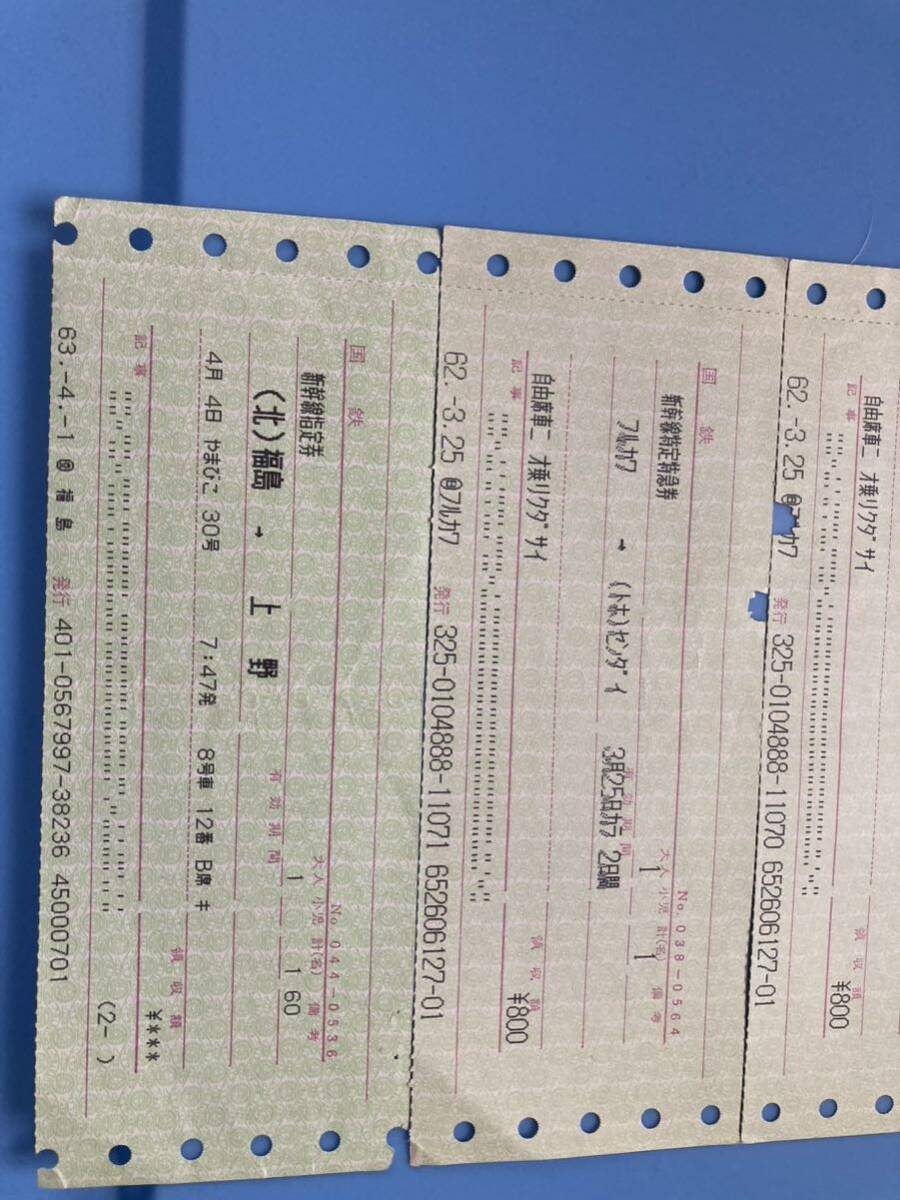 国鉄
No. 044-0536
新幹線指定券
大人 小児 計(名) 備考
1 1 60
(北)福島 → 上野
有効期間
4月 4日 やまびこ 30号 7:47発 8号車 12番 B席 キ
領収額
¥***
記事
(2- )
63.-4.-1 福島 発行 401-0567997-38236 45000701
国鉄
No. 038-0564
新幹線特定特急券
大人 小児 計(名) 備考
1 1
フルカワ → (トホ)センダイ
有効期間
3月25日カラ 2日間
自由席車ニ オ乗リクダサイ
領収額
¥800
記事
62.-3.25 @フルカワ 発行 325-0104888-11071 652606127-01
自由席車ニ オ乗リクダサイ
領収額
¥800
記事
62.-3.25 発行 325-0104888-11070 652606127-01